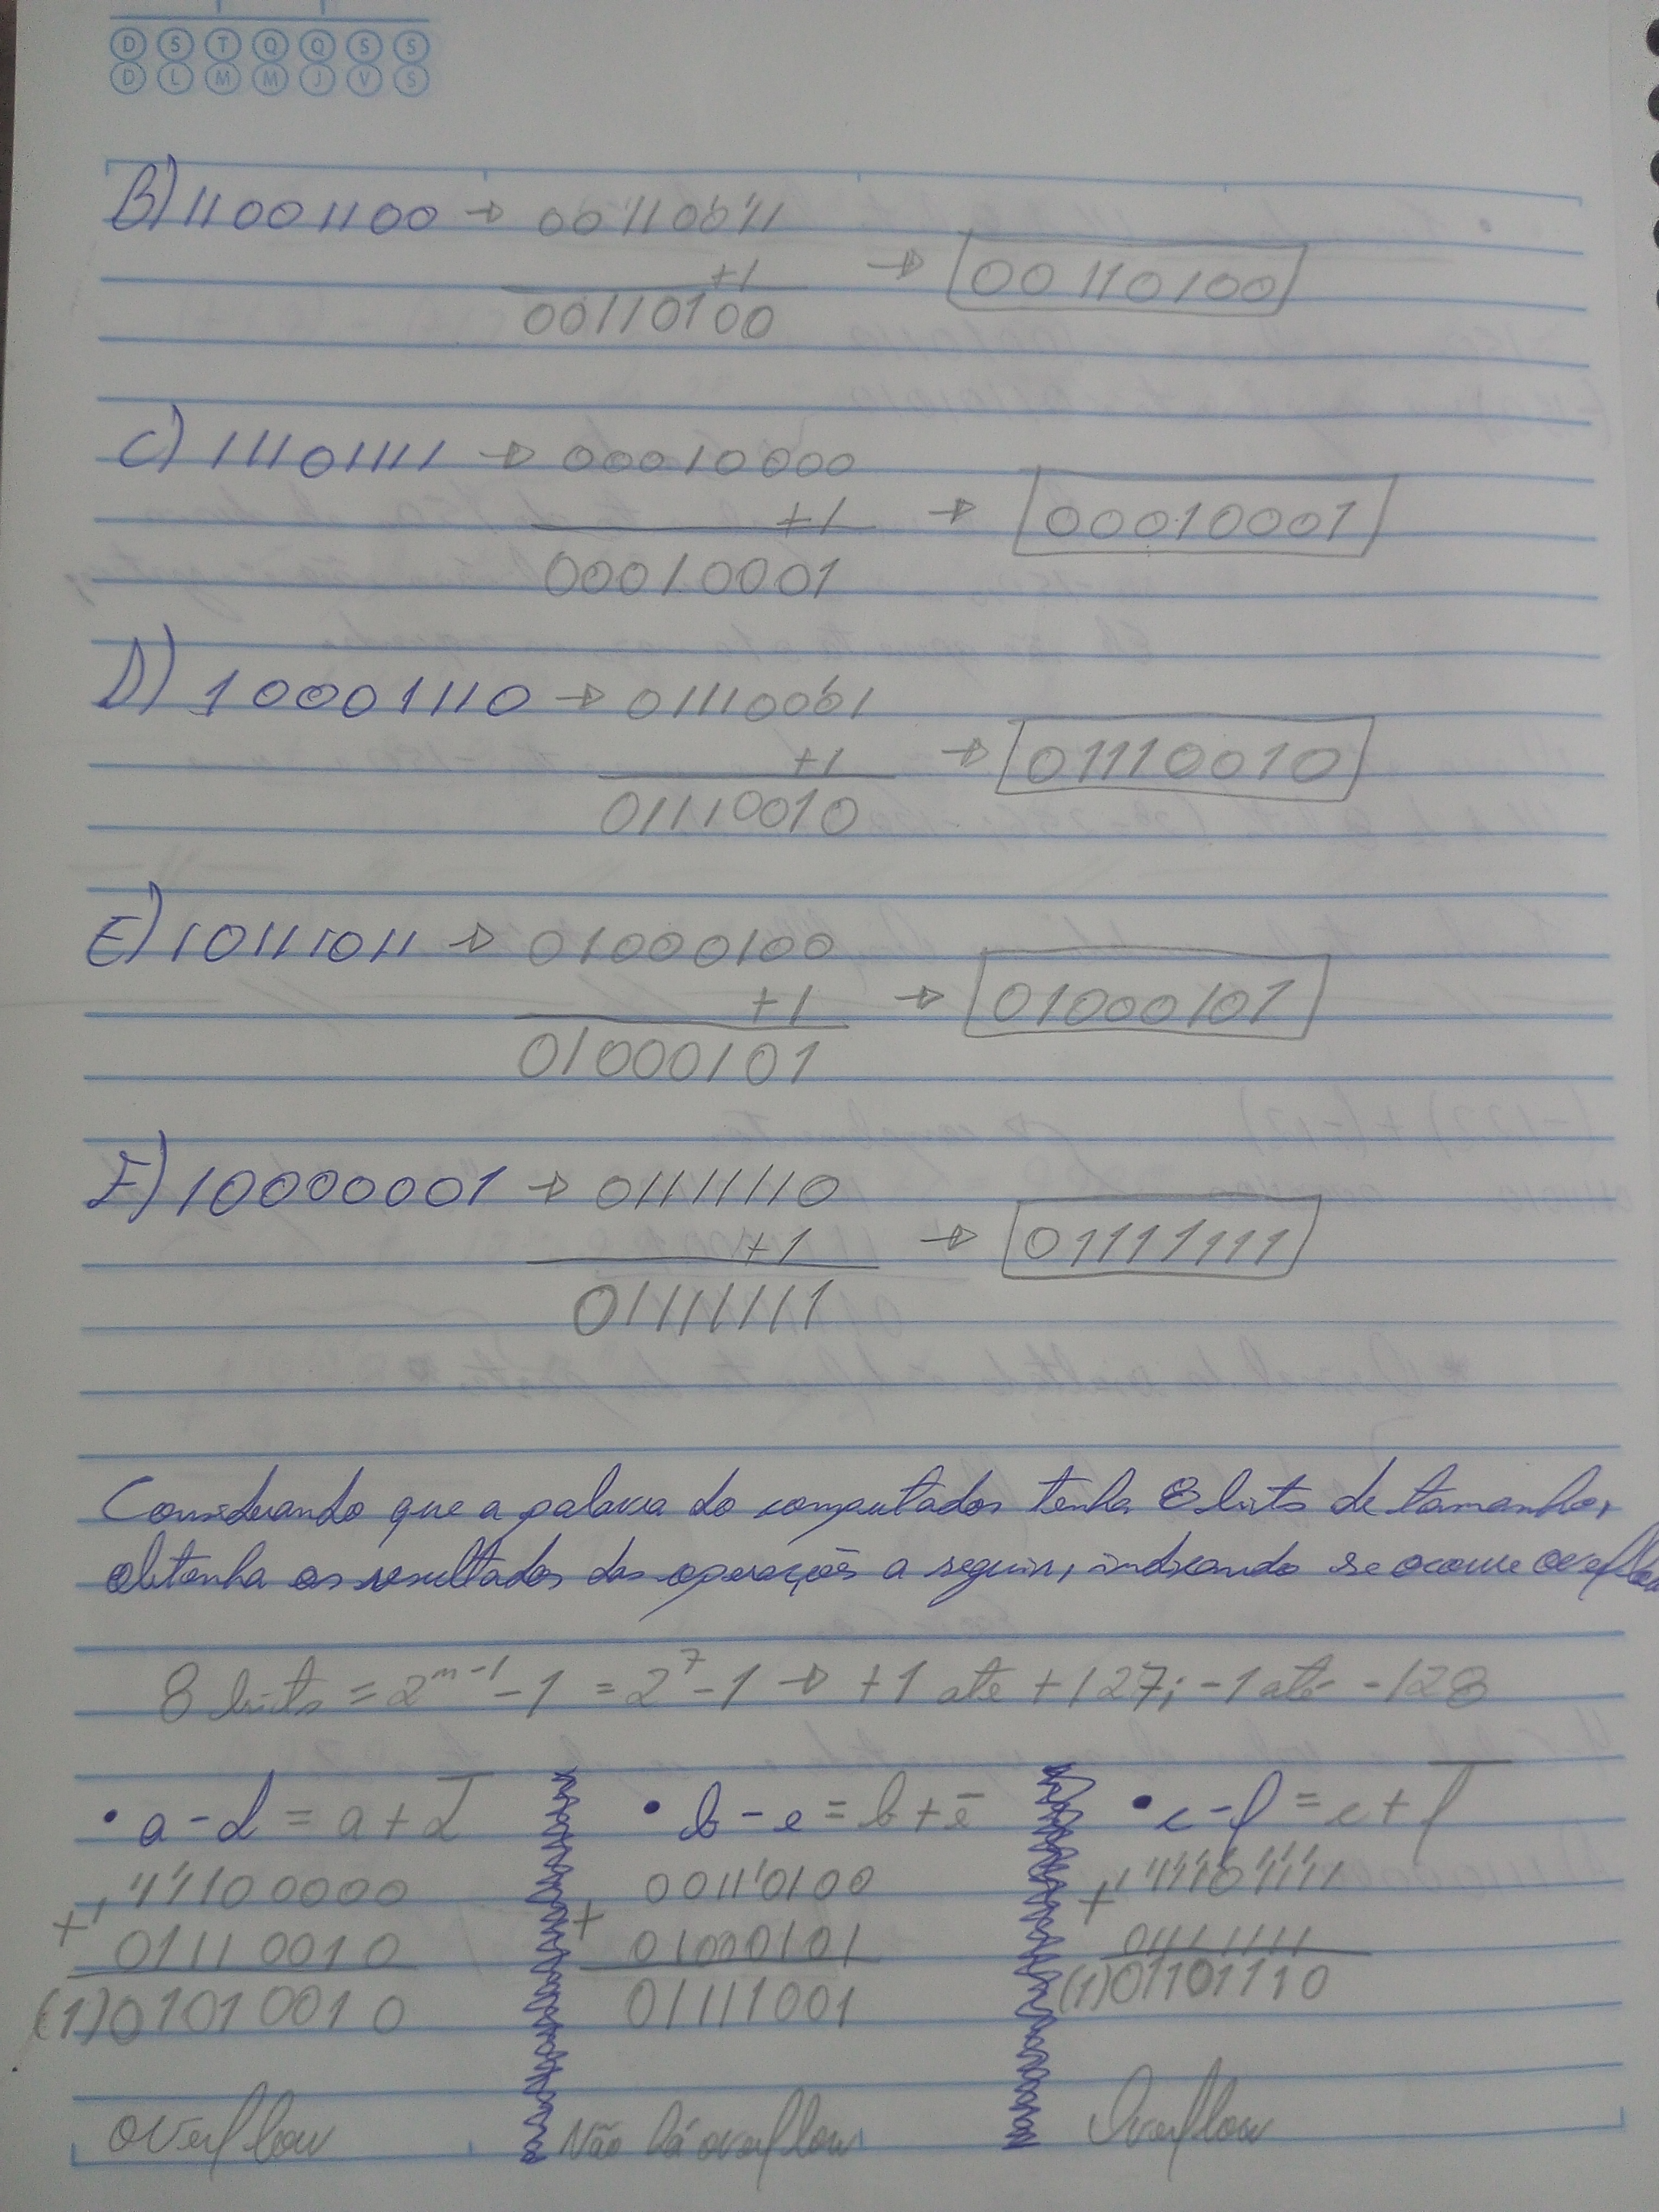 D S T Q Q S S
D L M M J V S
B) 11001100 → 00110011
+1 → 00110100
00110100
C) 11101111 → 00010000
+1 → 00010001
00010001
D) 10001110 → 01110001
+1 → 01110010
01110010
E) 10111011 → 01000100
+1 → 01000101
01000101
F) 10000001 → 01111110
+1 → 01111111
01111111
Considerando que a palavra do computador tenha 8 bits de tamanho,
obtenha os resultados das operações a seguir, indicando se ocorre overflow
8 bits = 2ⁿ⁻¹ - 1 = 2⁷ - 1 → +1 até +127; -1 até -128
• a - d = a + d̅ • b - e = b + e̅ • c - f = c + f̅
11100000 00110100 11101111
+ 01110010 + 01000101 + 01111111
(1)01010010 01111001 (1)01101110
overflow Não há overflow Overflow